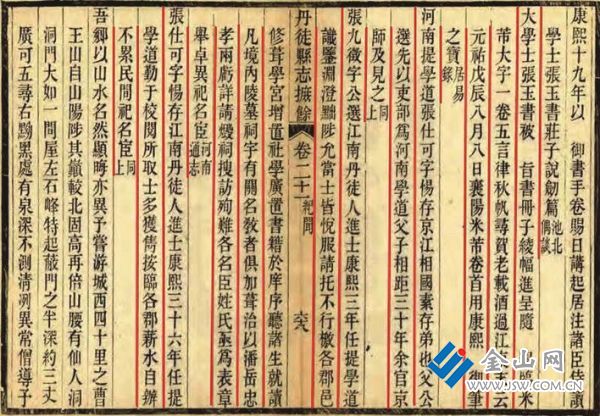 康熙十九年以 御書手卷賜日講起居注諸臣侍讀
學士張玉書莊子說劍篇 池北偶談
大學士張玉書被 旨書冊子綾幅進呈隨 臨米
芾大字一卷五言律秋帆尋賀老載酒過江 云
元祐戊辰八月八日襄陽米芾卷首用康熙 御筆
之寶 居易錄
河南提學道張仕可字惕存京江相國素存弟也父公
選先以吏部為河南學道父子相距三十年余官京
師及見之 同上
張九徵字公選江南丹徒人進士康熙三年任提學道
識鑒淵澄黜陟允當士皆悅服請托不行檄各郡邑
丹徒縣志摭餘 卷二十一 紀聞 六八
修葺學宮增置社學廣置書籍於庠序聽諸生就讀
凡境內陵墓祠宇有關名教者俱加葺治以潘岳忠
孝兩虧詳請燬祠搜訪殉難各名臣姓氏亟爲表章
舉卓異祀名宦 河南通志
張仕可字惕存江南丹徒人進士康熙三十六年任提
學道勤于校閱所取士多獲雋按臨各郡薪水自辦
不累民間祀名宦 同上
吾鄉以山水名然顯晦亦異予嘗游城西四十里之曹
王山自山陽陟其巔較北固高再倍山腰有仙人洞
洞門大如一間屋左石峰特起蔽門之半深約三丈
廣可五尋右黝黑處有泉深不測清冽異常僧導予
金山网
WWW.JSW.COM.CN